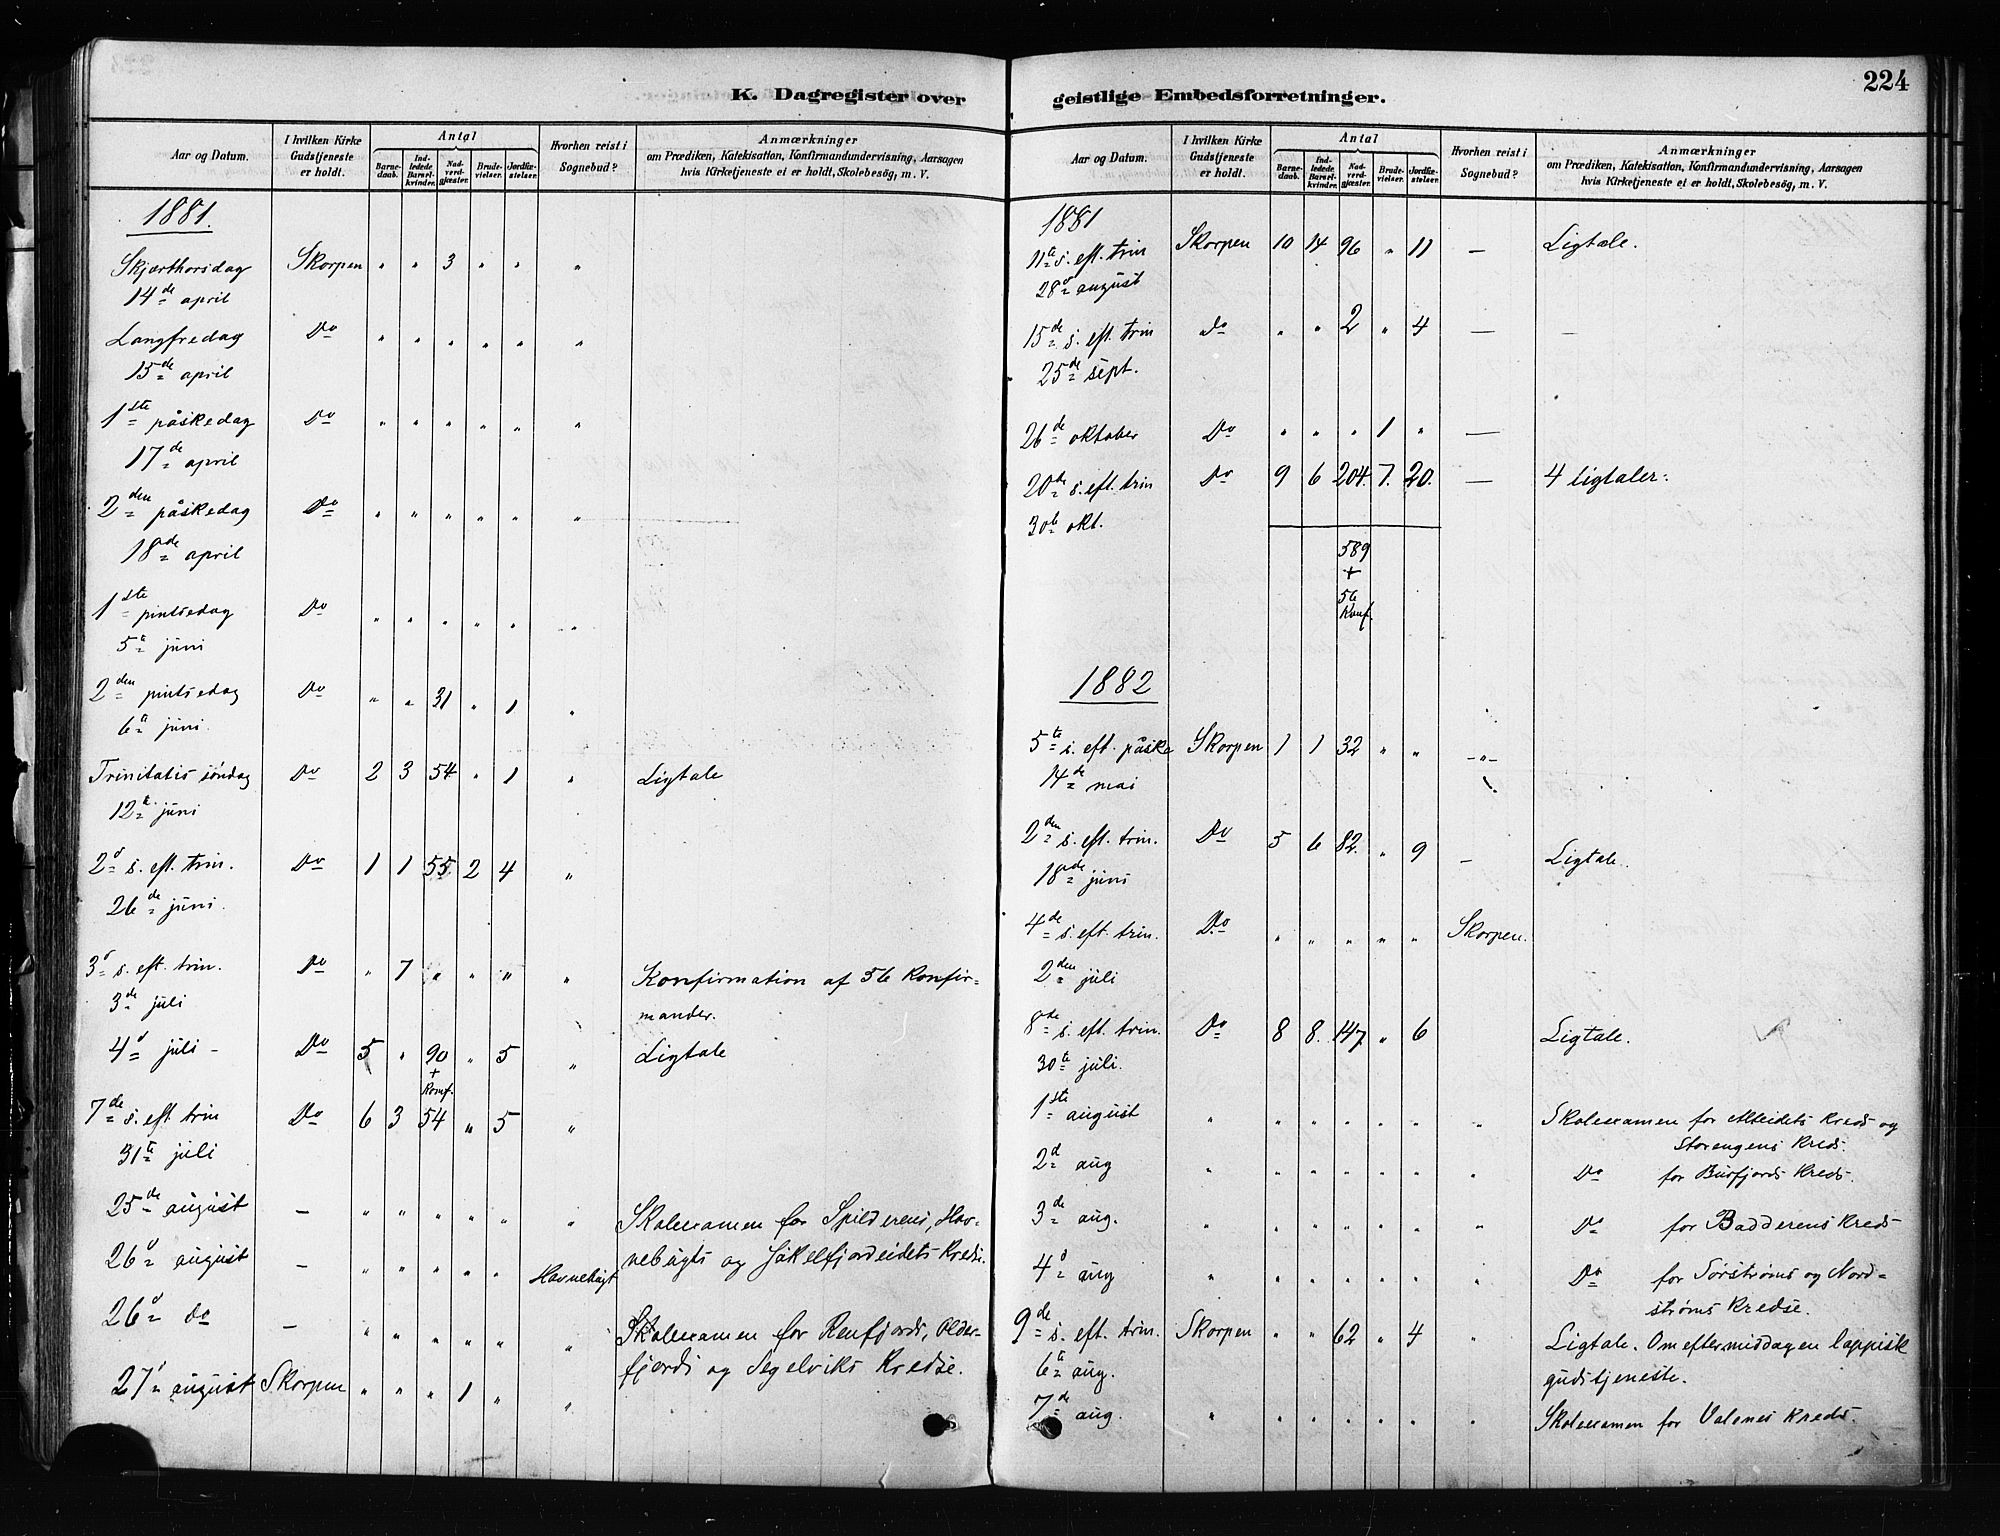 K. Dagregister over
Aar og Datum. I hvilken Kirke Gudstjeneste er holdt. Antal Barnedaab. Indledede Barselkvinder. Nadverdgjæster. Brudevielser. Jordfæstelser. Hvorhen reist i Sognebud? Anmærkninger om Prædiken, Katekisation, Konfirmandundervisning, Aarsagen hvis Kirketjeneste ei er holdt, Skolebesøg, m. V.
1881.
Skjærthorsdag Skorpen " " 3 " " "
14de april
Langfredag Do " " " " " "
15de april
1ste påskedag Do " " " " " "
17de april
2den påskedag Do " " " " " "
18de april
1ste pintsedag Do " " " " " "
5te juni
2den pintsedag Do " " 31 " 1 "
6te juni.
Trinitatis söndag Do 2 3 54 " 1 " Ligtale
12te juni
2d s. eft. trin. Do 1 1 55 2 4 "
26de juni.
3d s. eft. trin. Do " 7 " " " " Konfirmation af 56 Konfir-
3de juli mander.
4d juli - Do 5 " 90 " 5 " Ligtale
+
Konf.
7de s. eft. trin Do 6 3 54 " 5 "
31te juli
25de august — " " " " " " Skoleexamen for Spilderens, Hav-
26d august — " " " " " Havnebugt nebugts og Jökelfjordeidets Kredse.
26d do — " " " " " " Skoleexamen for Renfjords, Older-
fjords og Segelviks Kredse.
27d august Skorpen " " " 1 " "
geistlige Embedsforretninger.
224
Aar og Datum. I hvilken Kirke Gudstjeneste er holdt. Antal Barnedaab. Indledede Barselkvinder. Nadverdgjæster. Brudevielser. Jordfæstelser. Hvorhen reist i Sognebud? Anmærkninger om Prædiken, Katekisation, Konfirmandundervisning, Aarsagen hvis Kirketjeneste ei er holdt, Skolebesøg, m. V.
1881
11te s. eft. trin Skorpen 10 14 96 " 11 — Ligtale.
28d august
15de s. eft. trin do " " 2 " 4 — —
25de sept.
26de oktober Do " " " 1 " —
20de s. eft. trin Do 9 6 204. 7. 20. — 4 ligtaler.
30te okt.
589
+
56
Konf.
1882
5te s. eft. påske Skorpen 1 1 32 " " - " -
14de mai
2den s. eft. trin. Do 5 6 82. " 9 — Ligtale.
18de juni
4de s. eft. trin. Do " " " " " Skorpen.
2den juli
8de s. eft. trin. Do 8 8. 147 " 6 Ligtale.
30te juli.
1ste august " " " " " " " Skoleexamen for Alteidets Kreds og
Storengens Kreds.
2d aug " " " " " " " Do for Burfjords Kreds.
3de aug. " " " " " " " Do for Badderens Kreds
4d aug " " " " " " " Do for Sørstrøms og Nord-
strøms Kredse.
9de s. eft. trin. Skorpen " " 62 " 4 " Ligtale. Om eftermiddagen lappisk
6te aug. gudstjeneste.
7de aug. " " " " " " " Skoleexamen for Valenes Kreds.